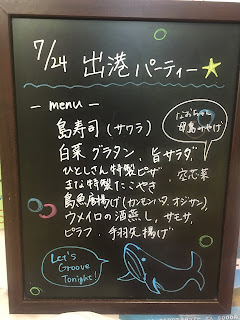 7/24 出港パーティー
- menu -
島寿司 (サワラ)
白菜グラタン、旨サラダ
ひとしさん特製ピザ
まな特製たこやき
島魚唐揚げ(カンモンハタ、オジサン)
ウメイロの酒蒸し、サモサ、
ピラフ、手羽先揚げ
なおちゃん
母島みやげ
空芯菜
Let's
Groove
Tonight!